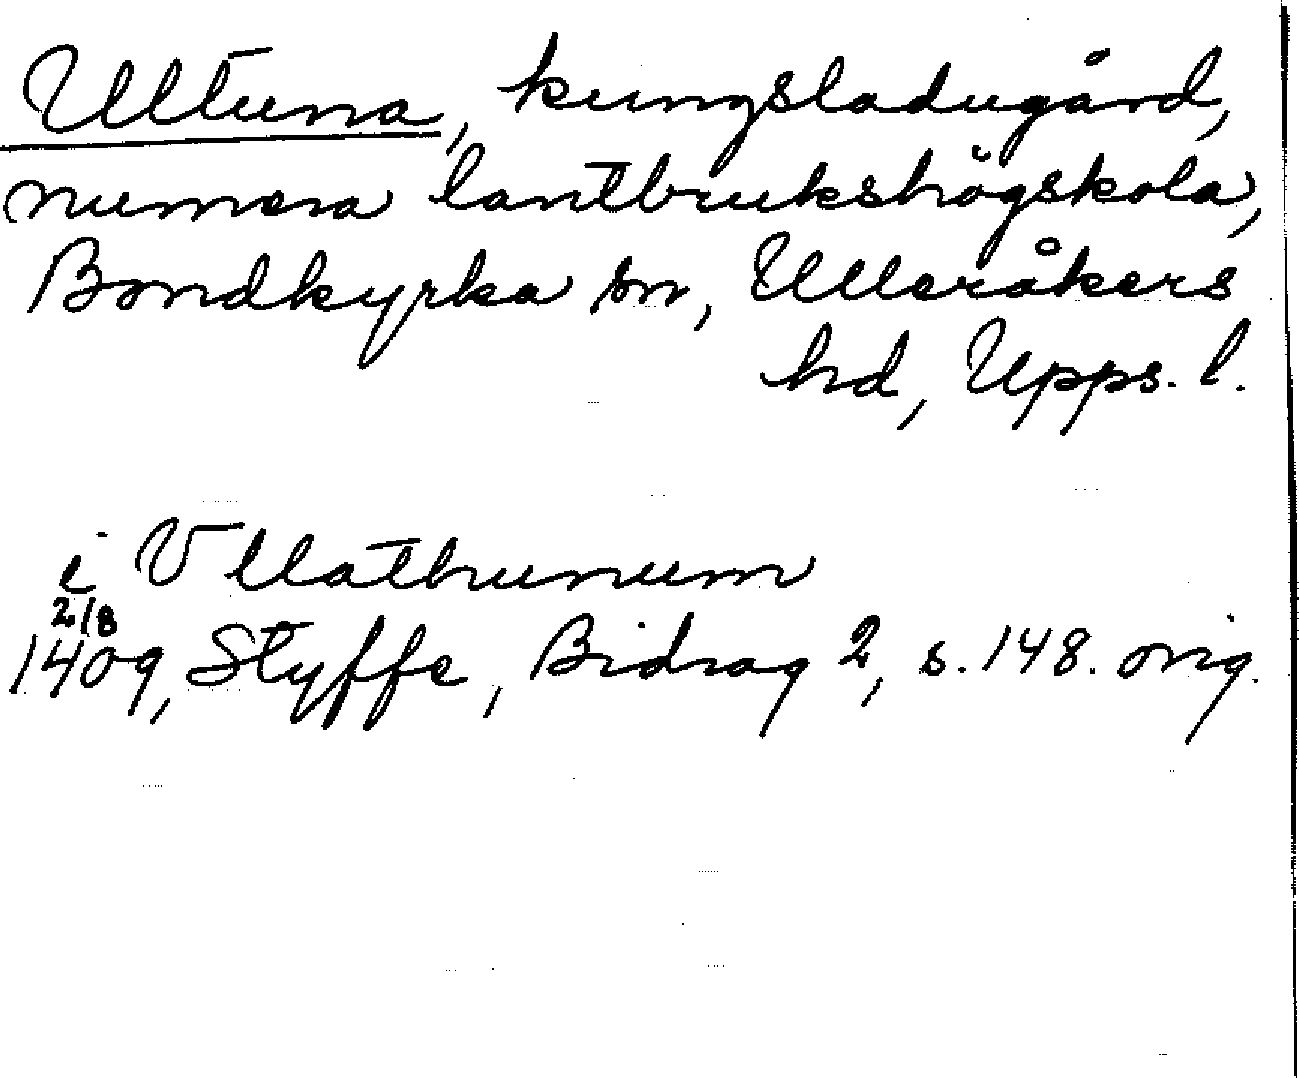 Ultuna, kungsladugård,
numera lantbrukshögskola,
Bondkyrka sn, Ulleråkers
hd, Upps. l.
i Vllathunum
2/8
1409, Styffe, Bidrag 2, s. 148. orig.